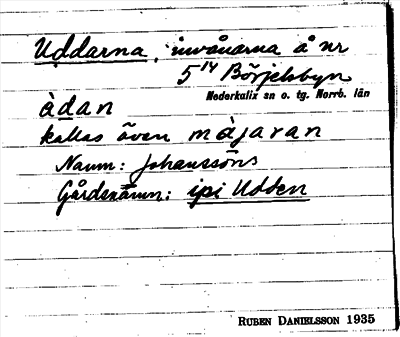 Uddarna, invånarna å nr
5¹⁴ Börjelsbyn
Nederkalix sn o. tg. Norrb. län
àdan
kallas även màjaran
Namn: Johanssons
Gårdsnamn: ipi Udden
RUBEN DANIELSSON 1935